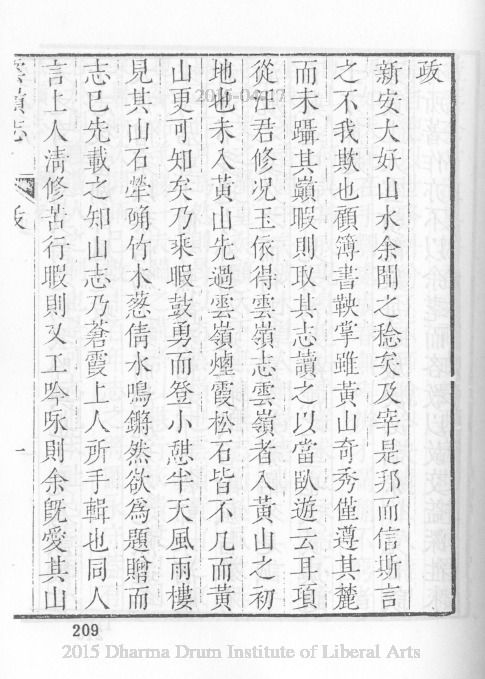 跋
新安大好山水余聞之稔矣及宰是邦而信斯言
之不我欺也顧簿書鞅掌雖黃山奇秀僅遵其麓
而未躡其巔暇則取其志讀之以當臥遊云耳項
從汪君修况玉依得雲嶺志雲嶺者入黃山之初
地也未入黃山先過雲嶺煙霞松石皆不凡而黃
山更可知矣乃乘暇鼓勇而登小憩半天風雨樓
見其山石犖确竹木蔥倩水鳴鏘然欲爲題贈而
志已先載之知山志乃蒼霞上人所手輯也同人
言上人淸修苦行暇則又工吟咏則余旣愛其山
雲嶺志
跋
一
209
2015 Dharma Drum Institute of Liberal Arts